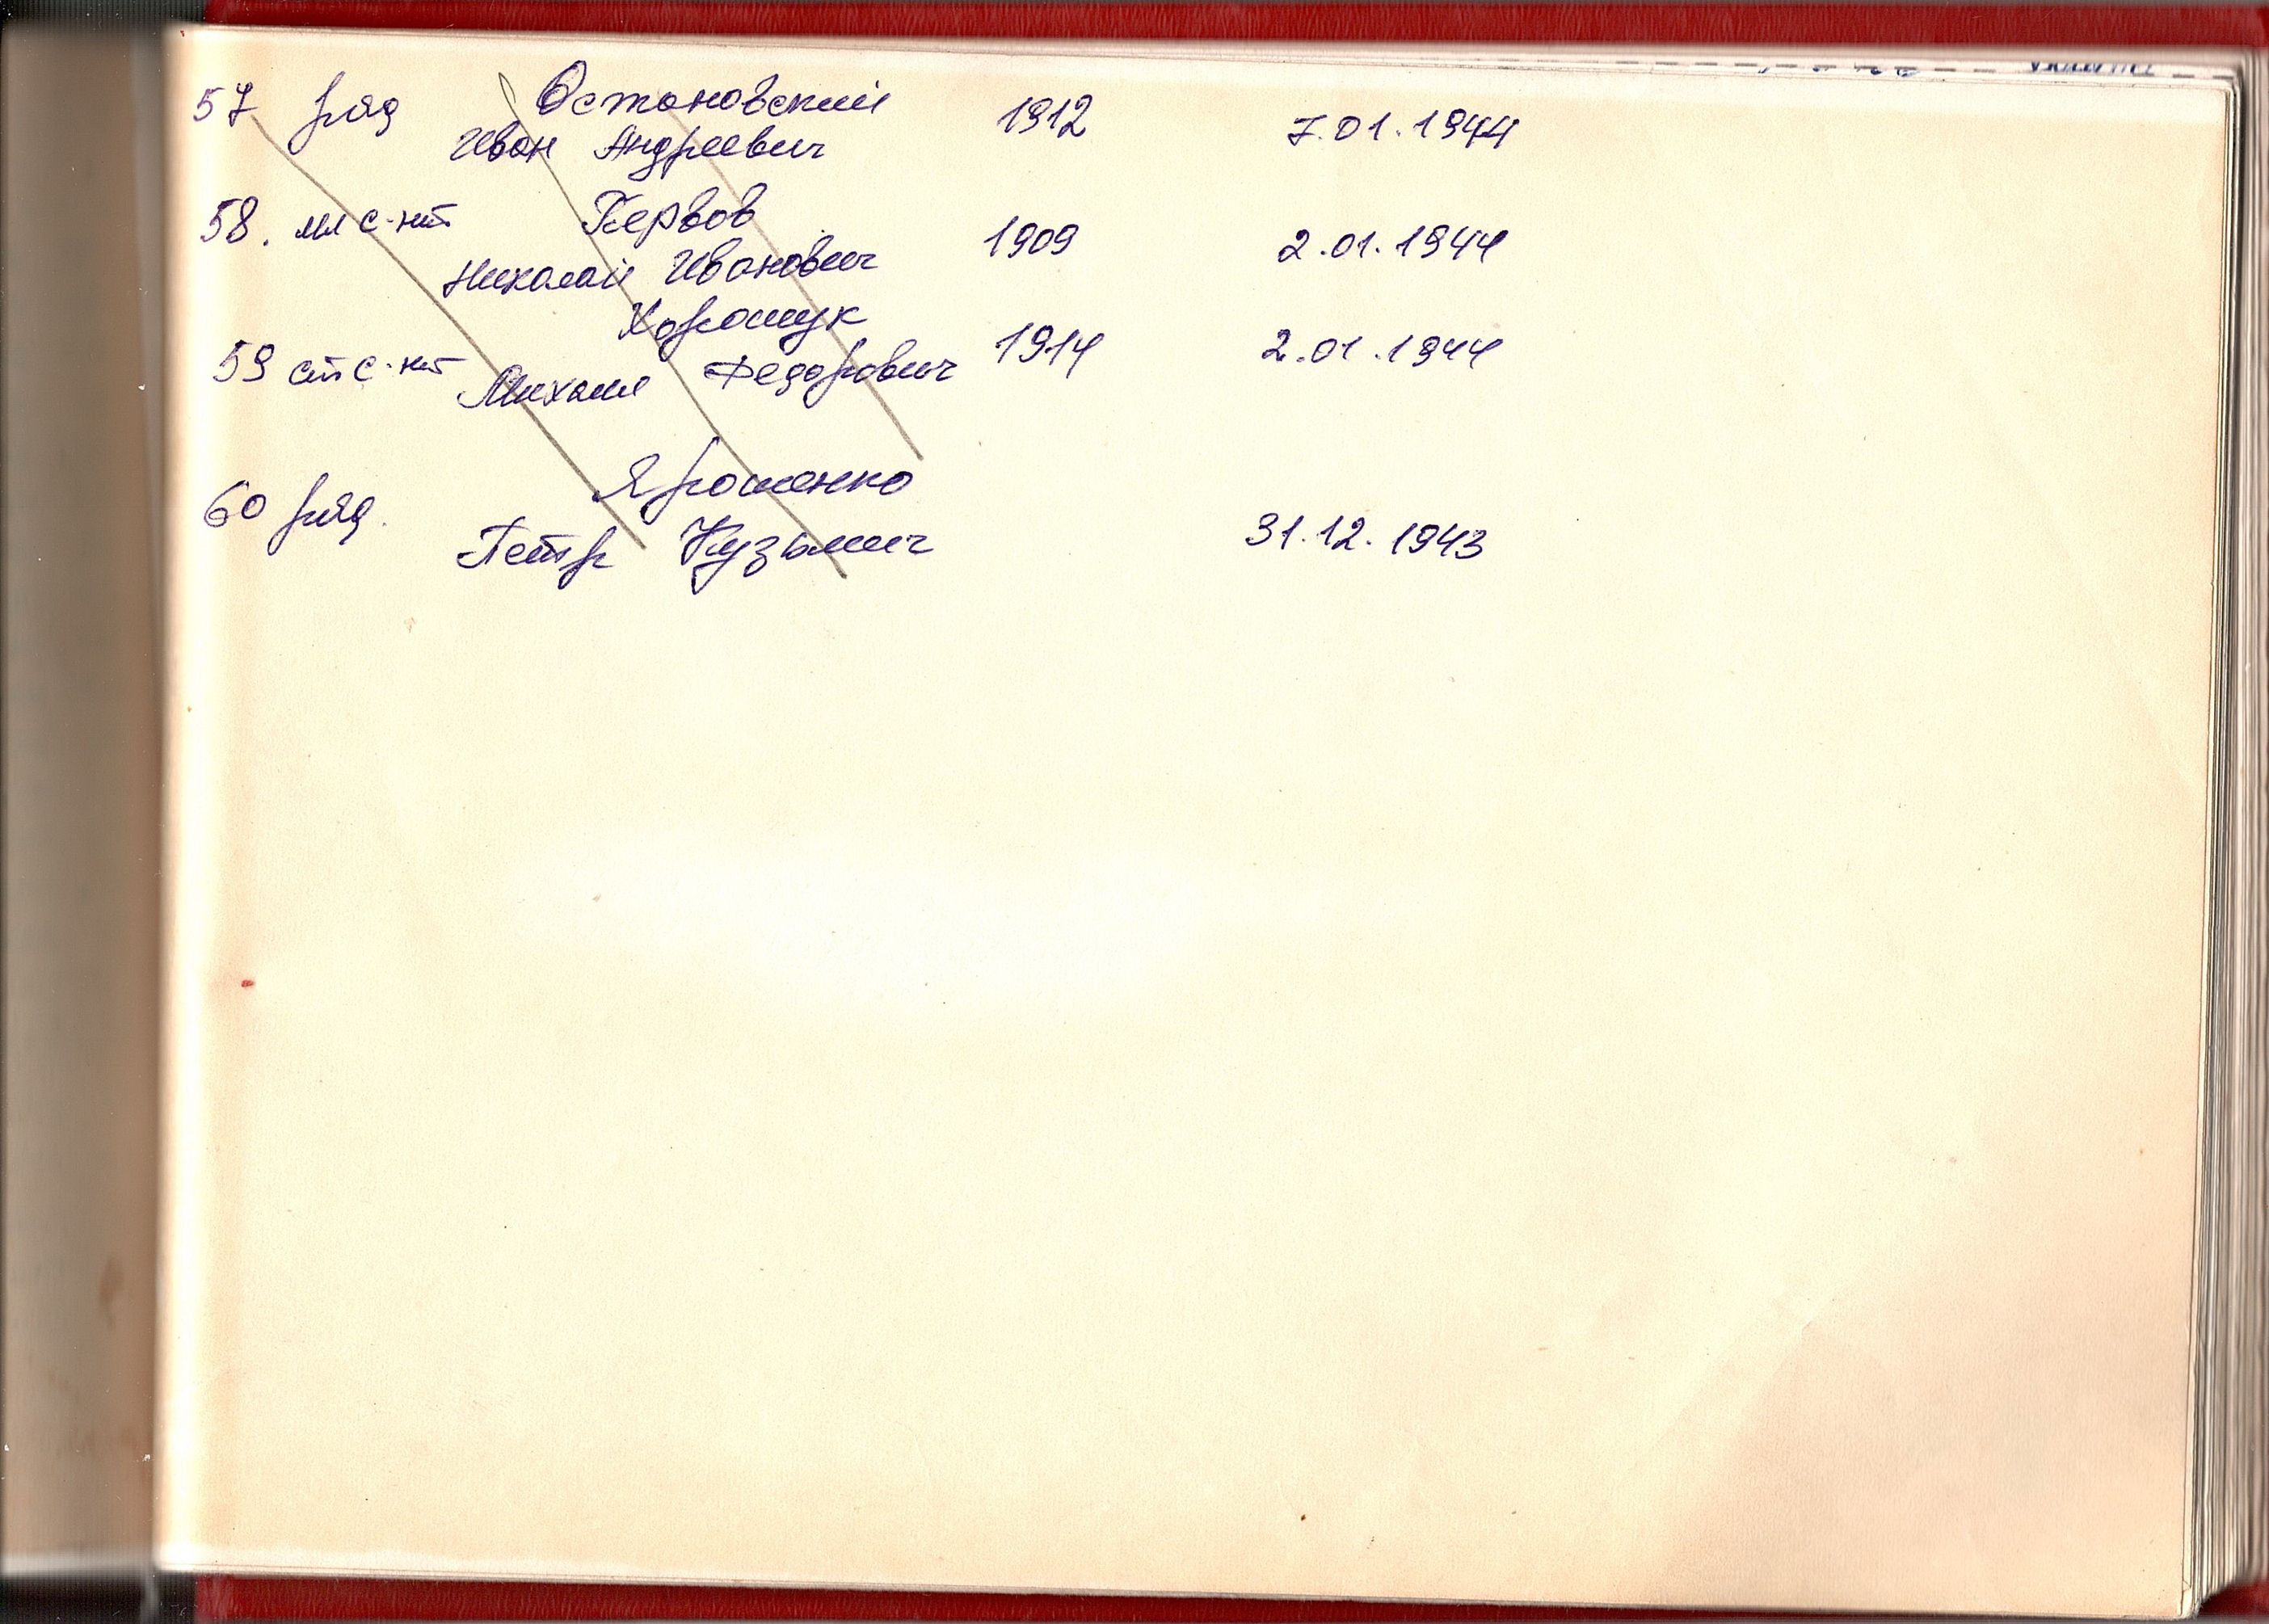 57 ряд Остановский 1912 7.01.1944
Иван Андреевич
58. мл с-нт Первов 1909 2.01.1944
Николай Иванович
Хорощук
59 ст с-нт Михаил Федорович 1914 2.01.1944
Ярошенко
60 ряд. Петр Кузьмич 31.12.1943